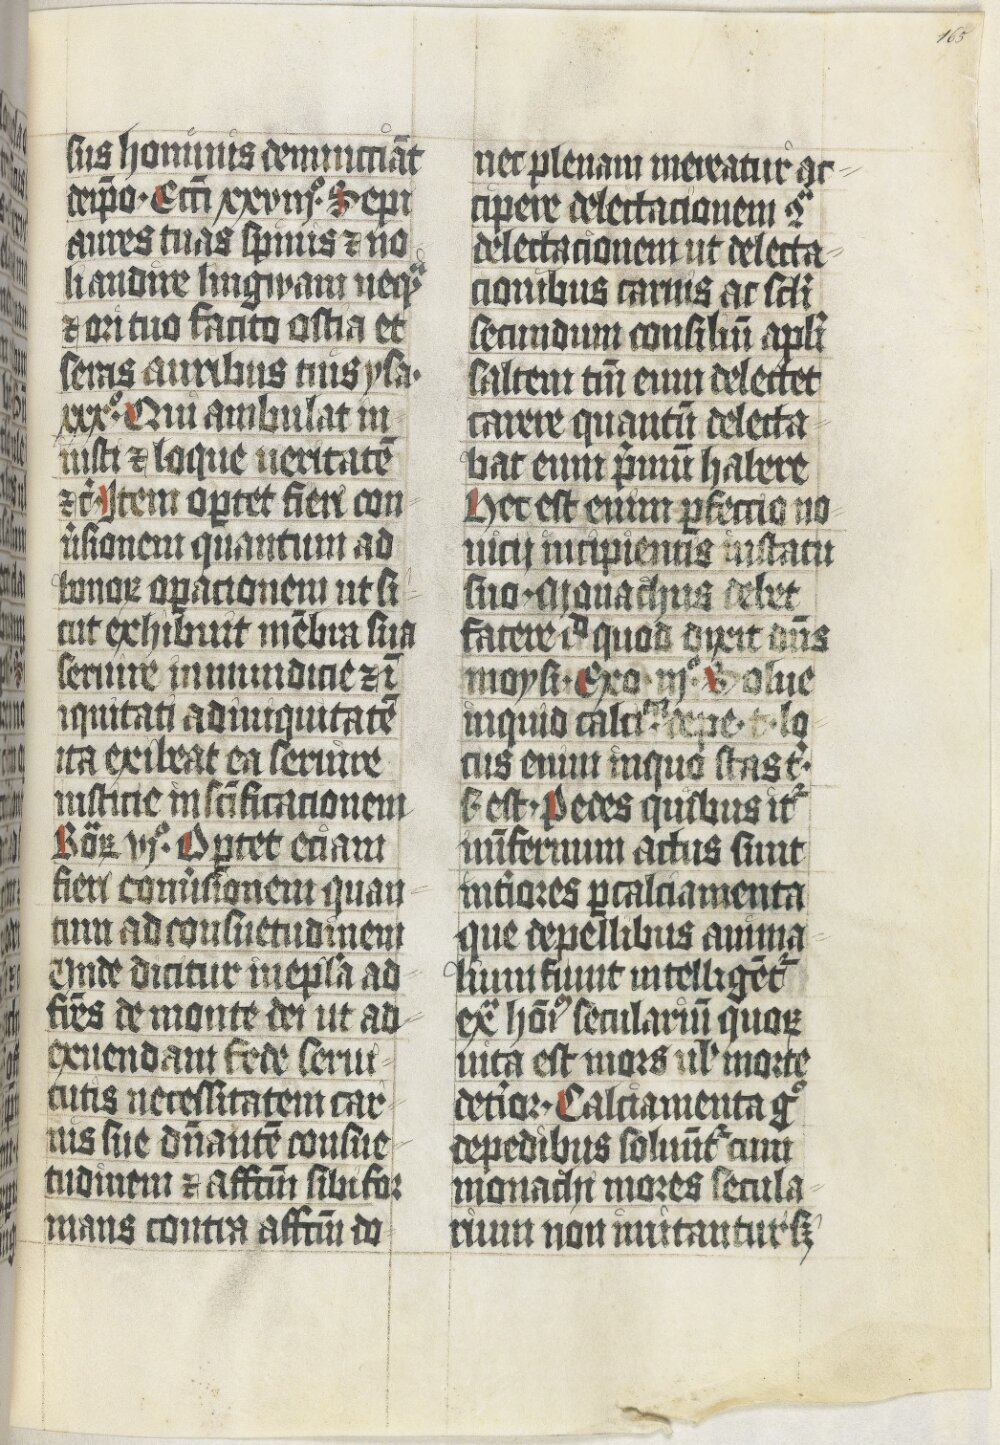 165
sus hominis denuncciāt
de ip̄o. Ecc̄i xxviijº. Sepi
aures tuas spinis ⁊ no
li audire lingwam neqᷓ
⁊ ori tuo facito ostia et
seras auribus tuis ysa.
xxxº. Qui ambulat in
iusti ⁊ loque ueritatē
⁊ċ. Item oꝑtet fieri con
u̾sionem quantum ad
bonoꝝ oꝑacionem ut si
cut exhibuit mēbra sua
seruire inmundicie ⁊ ī
iquitati ad iniquitatē
ita exibeat ea seruire
iusticie in sc̄ificacionem
Roꝝ vjº. Oꝑtet eciam
fieri conu̾sionem quan
tum ad consuetudinem
Unde dicitur in epl̄a ad
fr̄es de monte dei ut ad
exuendam fede serui
tutis necessitatem car
nis sue dn̄antē consue
tudinem ⁊ affc̄m sibi for
mans contra affc̄m do
nec plenam mereatur ac
cipere delectacionem ꝙᷓ
delectacionem ut delecta
cionibus carnis ac sc̄li
secundum consiliū apl̄i
saltem tm̄ eum delectet
carere quantū delecta
bat eum p̾mū habere
Hec est enim ꝑfectio no
uicij incipientis in statu
suo. Monachus debet
facere id quod dixit dn̄s
moysi. Exo. iijº. Solue
inquid calci depe. t. lo
cus enim in quo stas t̾.
s. est. Pedes quibus it̾
in infernum actus sunt
int̾iores ꝑ calciamenta
que de pellibus anima
lium fiunt intelligēt̾
exᷓ hōīꝫ seculariū quoꝝ
uita est mors ul̾ morte
det̾ior. Calciamenta gº
de pedibus soluūt̾ cum
monachi mores secula
rium non imitantur sꝫ